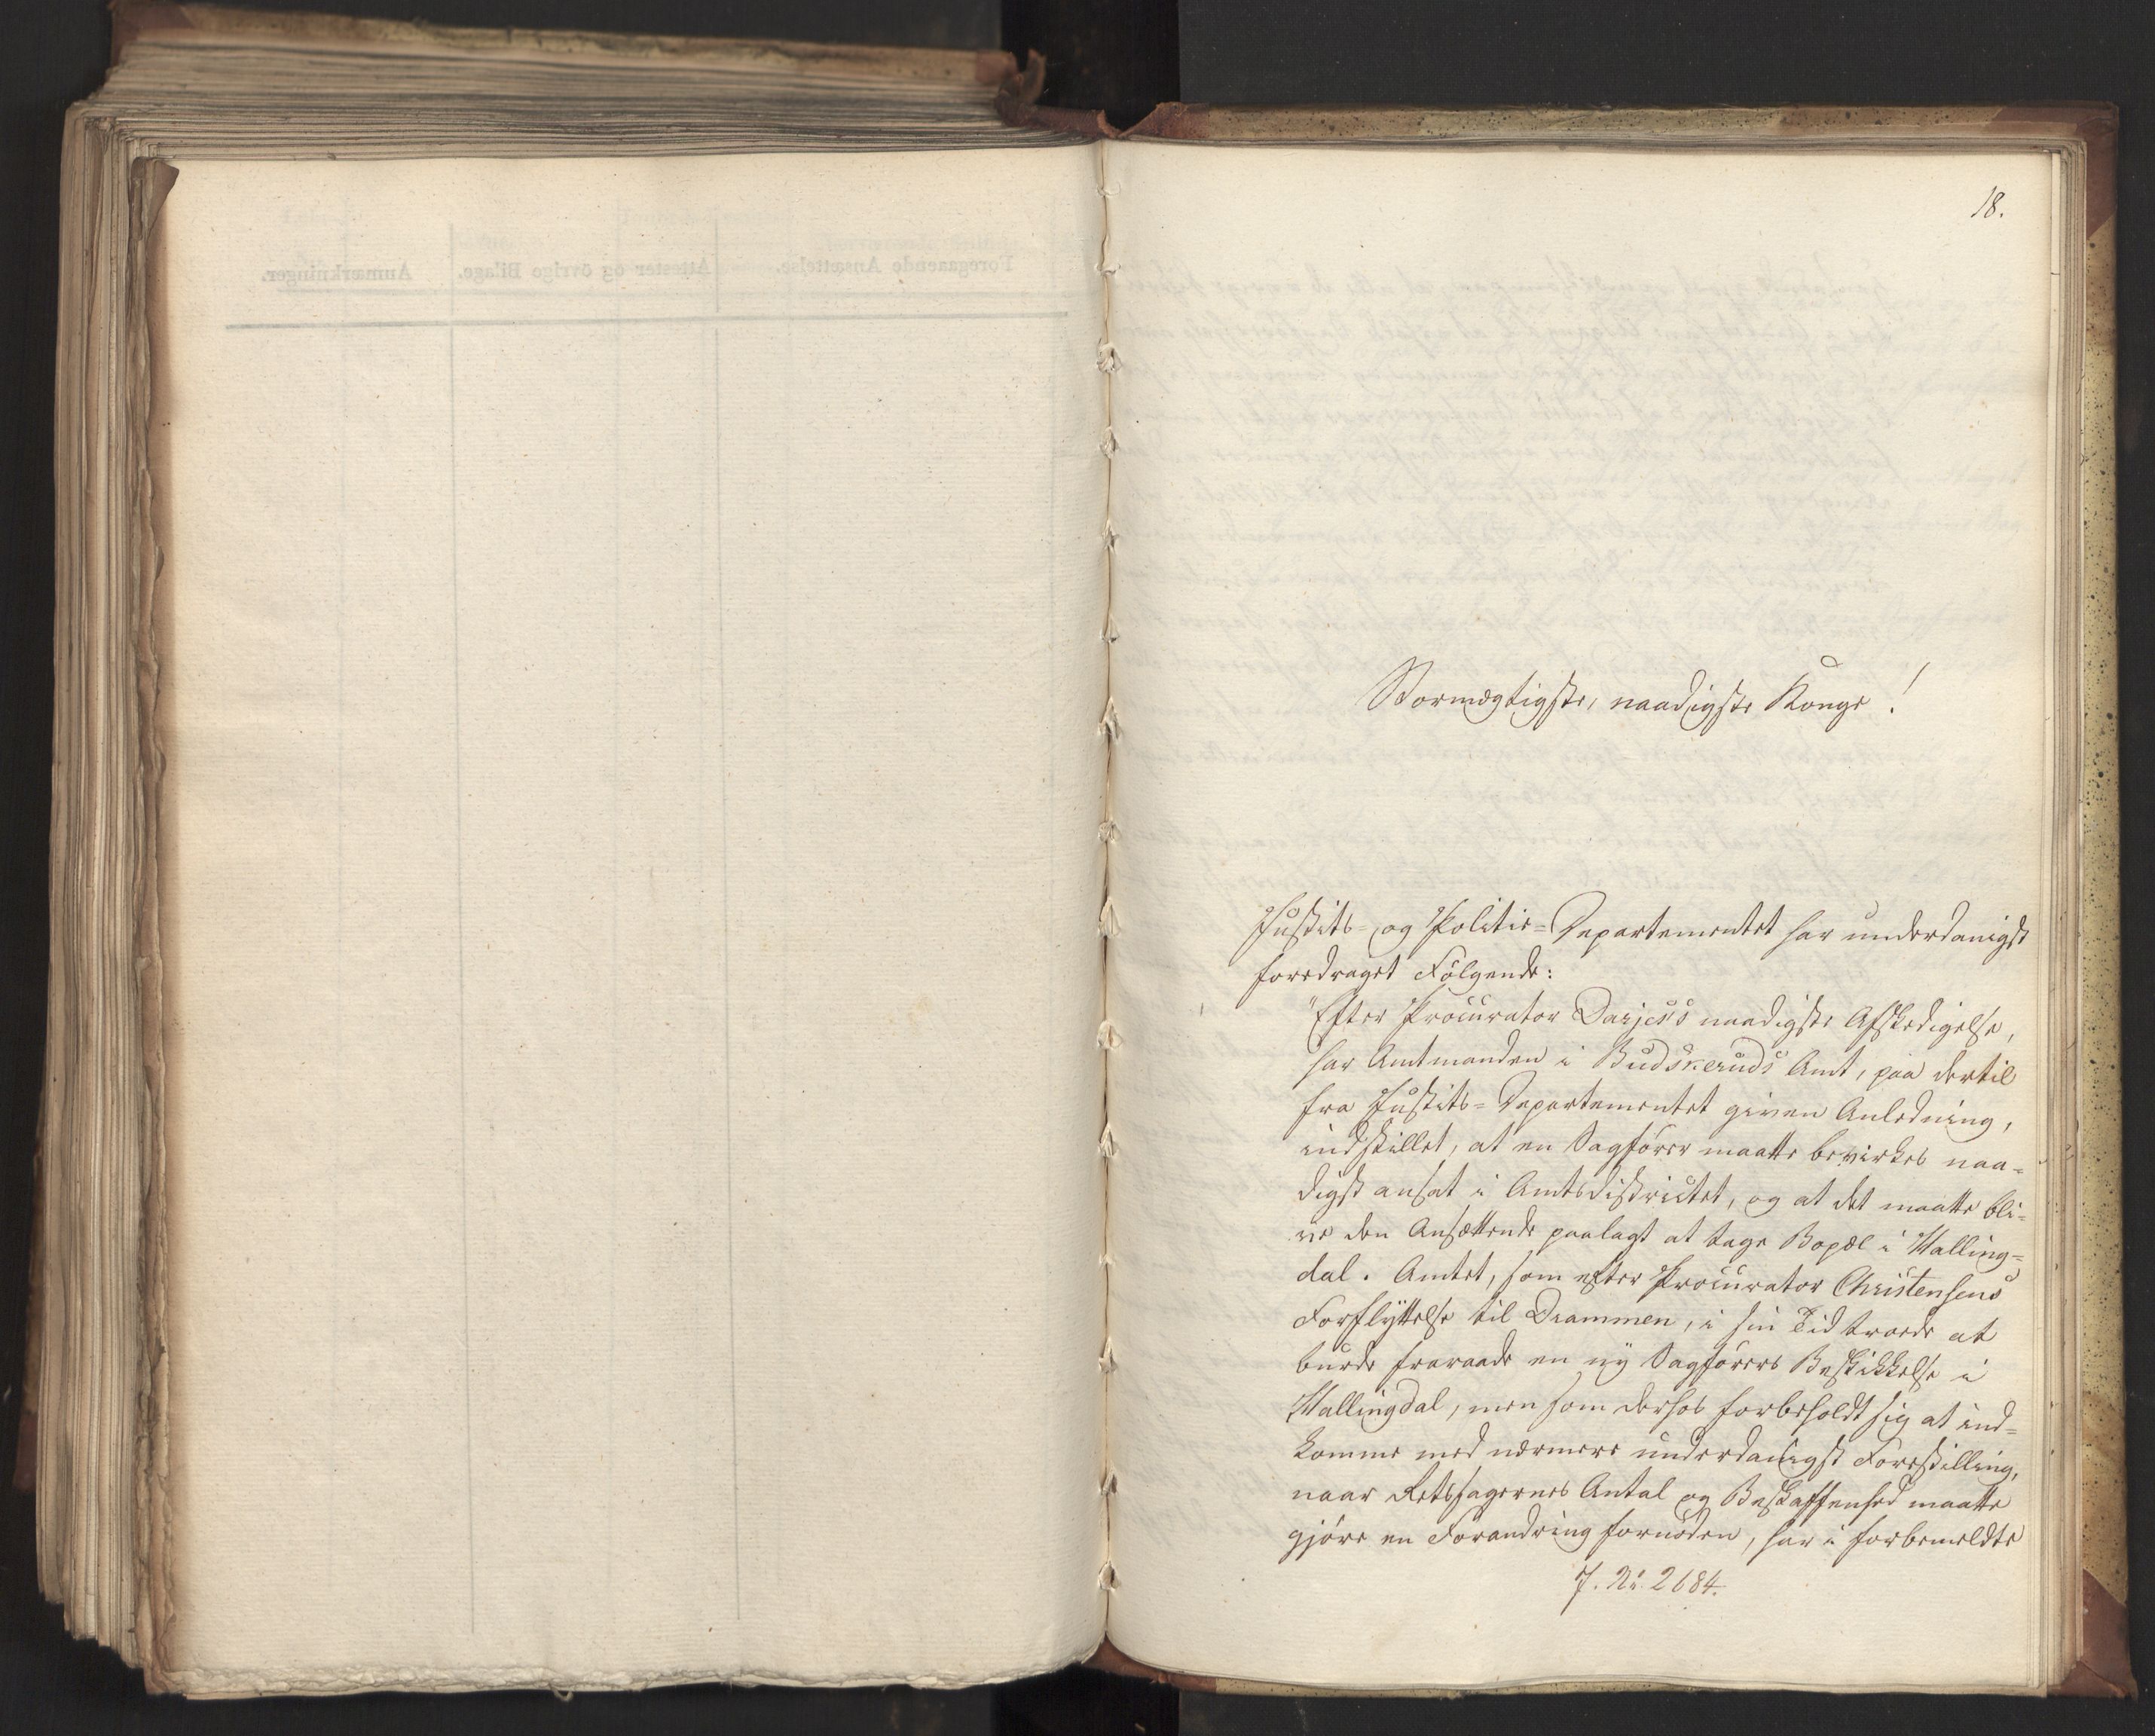 18.
Stormægtigste, naadigste Konge!
Justits- og Politie-Departementet har underdanigst
foredraget Følgende:
"Efter Procurator Darjes's naadigste Afskedigelse,
har Amtmanden i Budskeruds Amt, paa dertil
fra Justits-Departementet given Anledning,
indstillet, at en Sagfører maatte bevirkes naa-
digst ansat i Amtsdistrictet, og at det maatte bli-
ve den Ansættende paalagt at tage Bopæl i Halling-
dal. Amtet, som efter Procurator Christensens
Forflyttelse til Drammen, i sin Tid troede at
burde fraraade en ny Sagførers Beskikkelse i
Hallingdal, men som derhos forbeholdt sig at ind-
komme med nærmere underdanigst Forestilling,
naar Retssagernes Antal og Beskaffenhed maatte
gjøre en Forandring fornøden, har i forbemeldte
J. Nr. 2684.
Foregaaende Ansættelse.
Attester og övrige Bilage.
Anmærkninger.